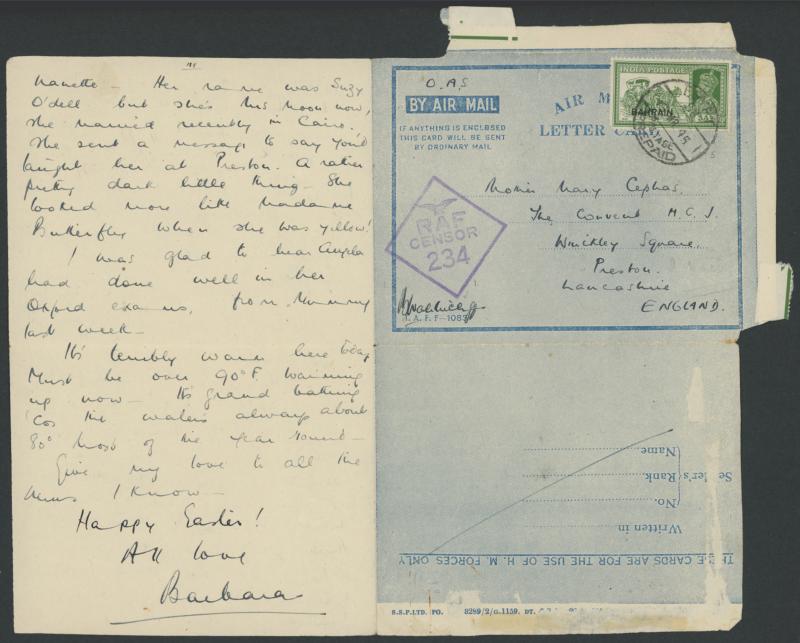 Nanette – Her name was Suzy
O'dell but she's Mrs Moon now,
she married recently in Cairo.
She sent a message to say you'd
taught her at Preston. A rather
pretty dark little thing – She
looked more like Madame
Butterfly when she was yellow!
I was glad to hear Angela
had done well in her
Oxford exams, from Mummy
last week –
It's terribly warm here today
Must be over 90°F. Warming
up now – It's grand bathing
'cos the water's always about
80° most of the year round –
Give my love to all the
nuns I know –
Happy Easter!
All love
Barbara
O.A.S
BY AIR MAIL
IF ANYTHING IS ENCLOSED
THIS CARD WILL BE SENT
BY ORDINARY MAIL
AIR M
LETTER CA
INDIA POSTAGE
BAHRAIN
PAID
RAF
CENSOR
234
Mother Mary Cephas,
The Convent H.C.J.
Winckley Square,
Preston.
Lancashire
ENGLAND.
A.F.F—108
Name
Rank
No.
Written in
CARDS ARE FOR THE USE OF H.M. FORCES ONLY
S.S.P.LTD. FO. 8289/2/G.1159. DT.